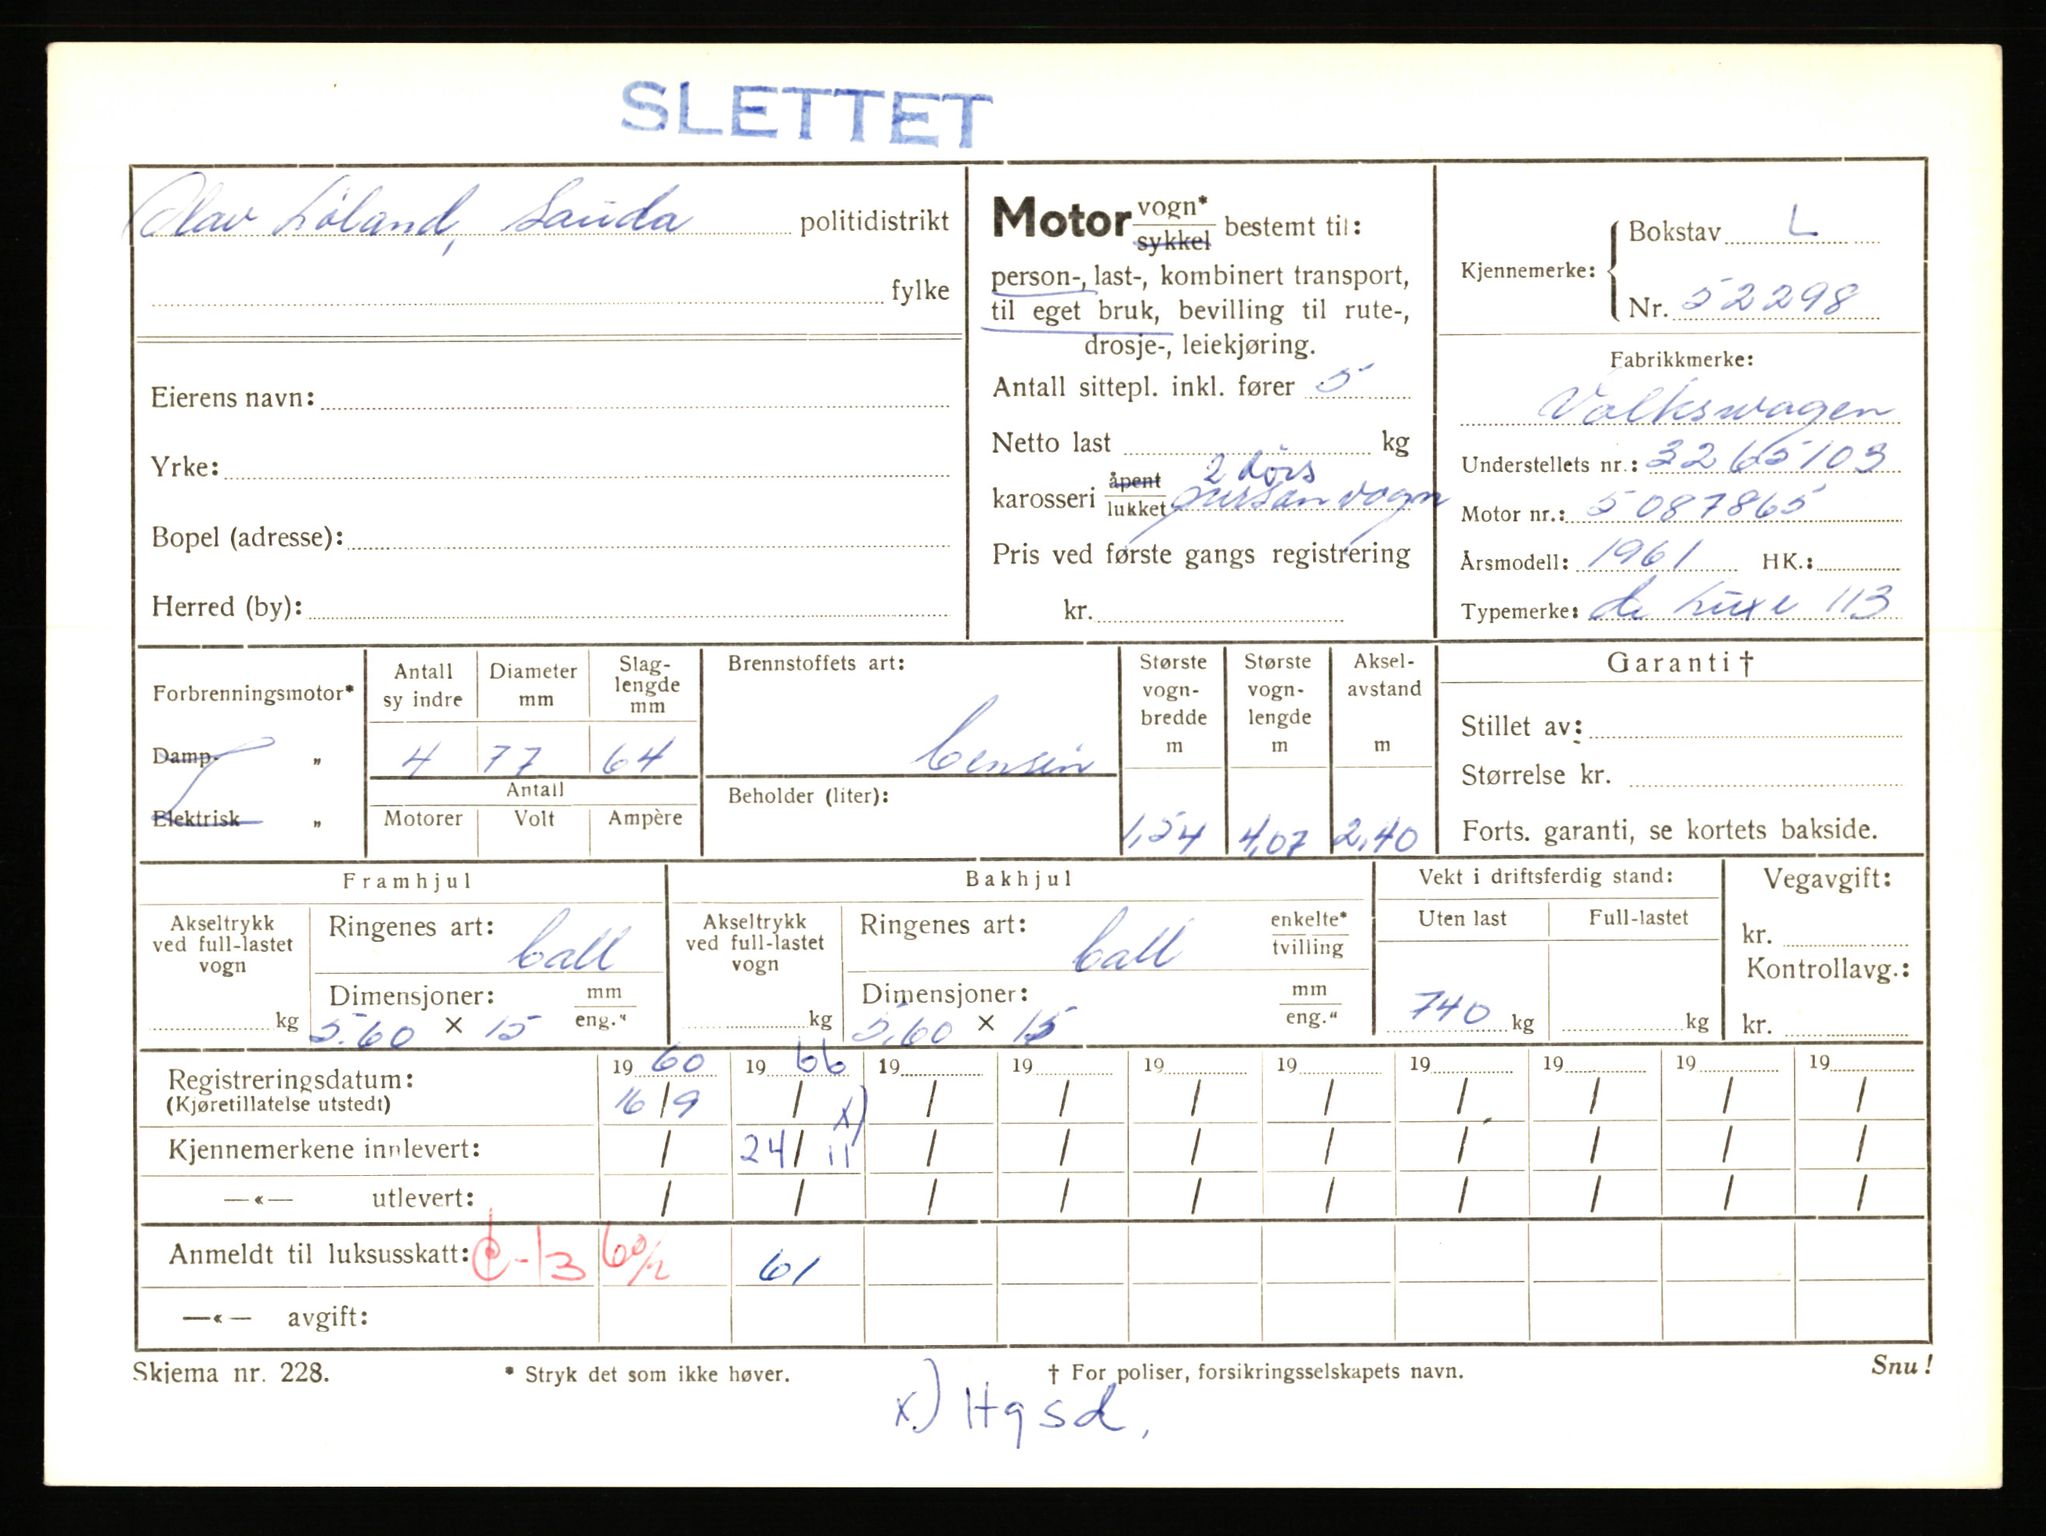 SLETTET
Olav Løland, Sauda politidistrikt
fylke
Eierens navn:
Yrke:
Bopel (adresse):
Herred (by):
Motor vogn* sykkel bestemt til:
person-, last-, kombinert transport,
til eget bruk, bevilling til rute-,
drosje-, leiekjøring.
Antall sittepl. inkl. fører 5
Netto last kg
2 dørs
karosseri åpent lukket personvogn
Pris ved første gangs registrering
kr.
Kjennemerke: Bokstav L
Nr. 52298
Fabrikkmerke:
Volkswagen
Understellets nr.: 3265103
Motor nr.: 5087865
Årsmodell: 1961 HK.:
Typemerke: de Luxe 113
Forbrenningsmotor*
Damp- „
Elektrisk „
Antall sy indre
Diameter mm
Slag-lengde mm
4 77 64
Antall
Motorer Volt Ampère
Brennstoffets art:
bensin
Beholder (liter):
Største vogn-bredde m
Største vogn-lengde m
Aksel-avstand m
1,54 4,07 2,40
Garanti †
Stillet av:
Størrelse kr.
Forts. garanti, se kortets bakside.
Framhjul
Akseltrykk ved full-lastet vogn
kg
Ringenes art: ball
Dimensjoner: mm eng."
5.60 × 15
Bakhjul
Akseltrykk ved full-lastet vogn
kg
Ringenes art: ball enkelte* tvilling
Dimensjoner: mm eng."
5,60 × 15
Vekt i driftsferdig stand:
Uten last Full-lastet
740 kg kg
Vegavgift:
kr.
Kontrollavg.:
kr.
19 60 19 66 19 19 19 19 19 19 19 19
Registreringsdatum:
(Kjøretillatelse utstedt)
16/9 / / / / / / / / /
x)
Kjennemerkene innlevert: / 24/11 / / / / / / / /
—«— utlevert: / / / / / / / / / /
Anmeldt til luksusskatt: 60/2 61
—«— avgift:
Skjema nr. 228. * Stryk det som ikke høver. † For poliser, forsikringsselskapets navn. Snu!
x.) Hgsd,